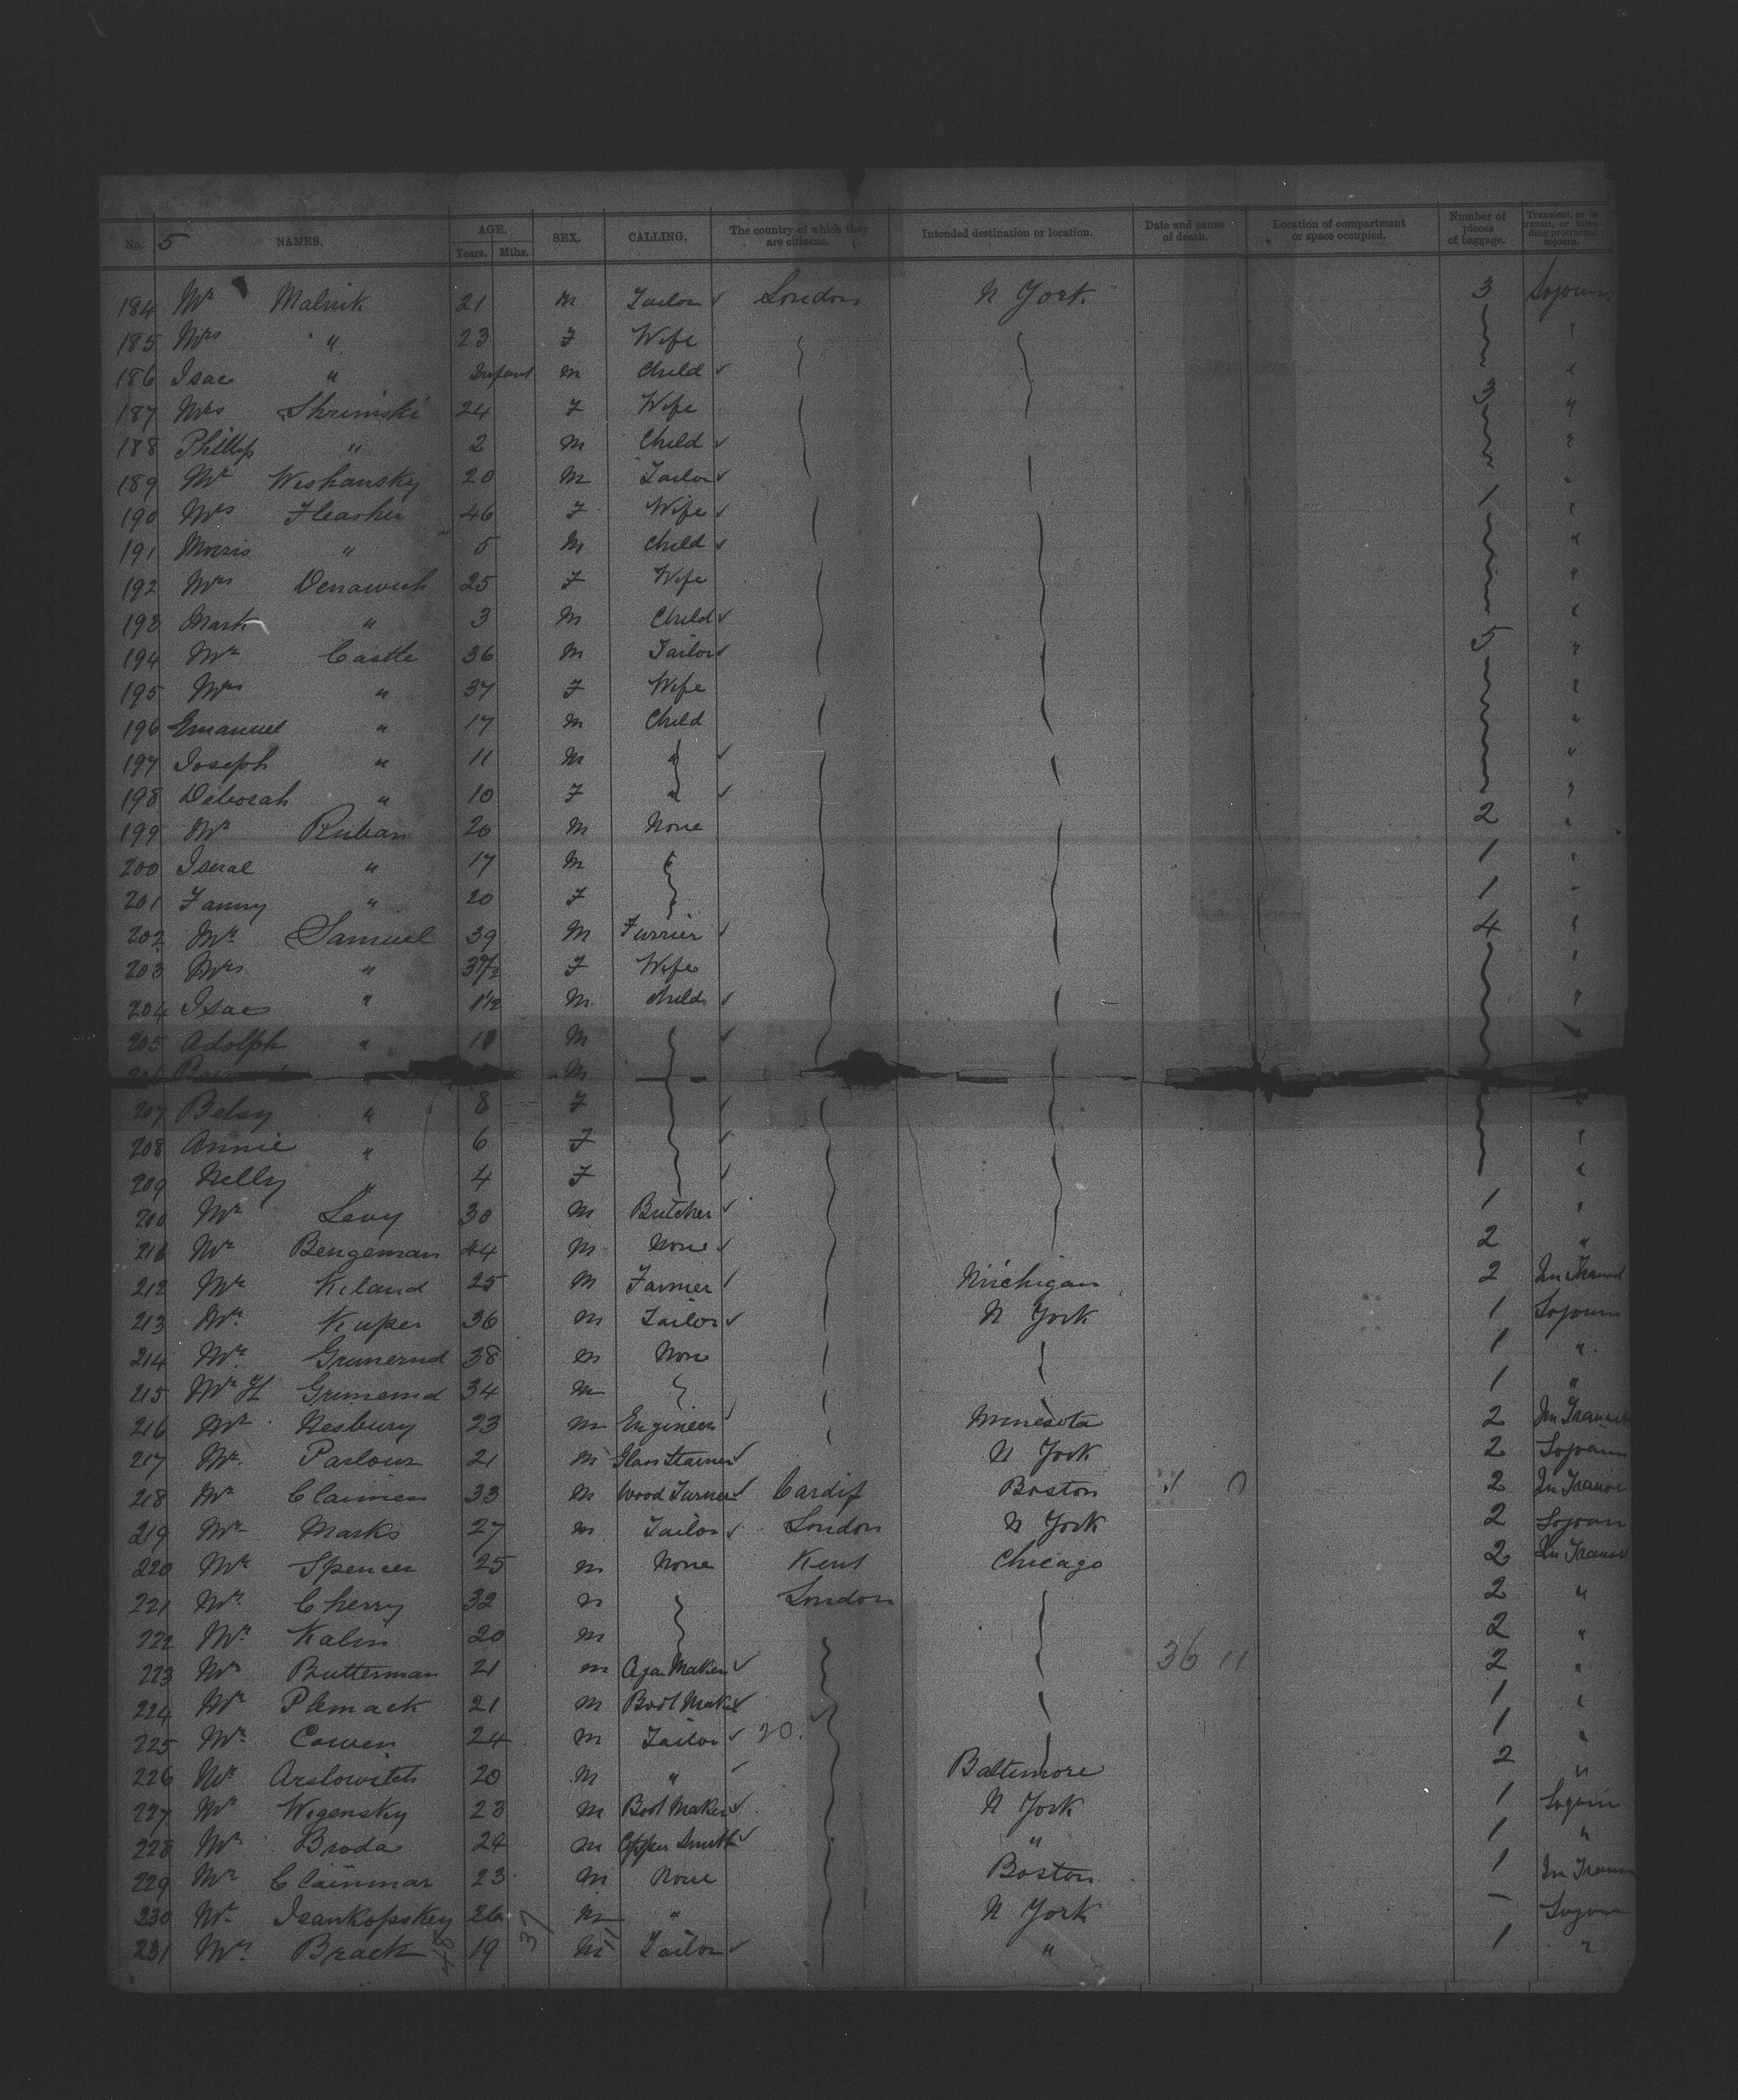 No. 5 NAMES. AGE. Years. Mths. SEX. CALLING. The country of which they are citizens. Intended destination or location. Date and cause of death. Location of compartment or space occupied. Number of pieces of baggage. Transient, or in transit, or intending protracted sojourn.
184 Mr Malnik 21 M Tailor ✓ London N York. 3 Sojourn
185 Mrs " 23 F Wife "
186 Isac " Infant M Child ✓ "
187 Mrs Shrimski 24 F Wife 3 "
188 Phillip " 2 M Child ✓ "
189 Mr Wishansky 20 M Tailor ✓ "
190 Mrs Fleasher 46 F Wife ✓ 1 "
191 Morris " 5 M Child ✓ "
192 Mrs Denawich 25 F Wife "
193 Mark " 3 M Child ✓ "
194 Mr Castle 36 M Tailor ✓ 5 "
195 Mrs " 37 F Wife "
196 Emanuel " 17 M Child "
197 Joseph " 11 M " ✓ "
198 Deborah " 10 F " ✓ "
199 Mr Ruban 26 M None 2 "
200 Iseral " 17 M 1 "
201 Fanny " 20 F 1 "
202 Mr Samuel 39 M Furrier ✓ 4 "
203 Mrs " F Wife "
204 Isac " M Child ✓ "
205 Adolph " M ✓ "
M
207 Betsy " 8 F ✓ "
208 Annie " 6 F ✓ "
209 Nelly " 4 F ✓ "
210 Mr Levy 30 M Butcher ✓ 1 "
211 Mr Bengeman 44 M None ✓ 2 "
212 Mr Kiland 25 M Farmer Michigan 2 In Transit
213 Mr Kuper 36 M Tailor ✓ N York 1 Sojourn
214 Mr Grunernd 38 M None 1 "
215 Mr H Grimernd 34 M 1 "
216 Mr Nesbury 23 M Engineer Minesota 2 In Transit
217 Mr Parlour 21 M Glass Stainer ✓ N York 2 Sojourn
218 Mr Claimen 33 M Wood Turner ✓ Cardif Boston 2 In Transit
219 Mr Marks 27 M Tailor ✓ London N York 2 Sojourn
220 Mr Spencer 25 M None Kent Chicago 2 In Transit
221 Mr Cherry 32 M London 2 "
222 Mr Kalin 20 M 2 "
223 Mr Butterman 21 M Cigar Maker ✓ 36 11 2 "
224 Mr Plemack 21 M Boot Maker ✓ 1 "
225 Mr Cowen 24 M Tailor ✓ 20. 1 "
226 Mr Arslowitch 20 M " ✓ Baltimore 2 "
227 Mr Wigensky 23 M Boot Maker ✓ N York 1 Sojourn
228 Mr Broda 24 M Copper Smith ✓ " 1 "
229 Mr Clainmar 23 M None Boston 1 In Transit
230 Mr Isankopskey 26 M " N York – Sojourn
231 Mr Brack 19 37 M 11 Tailor ✓ " 1 "